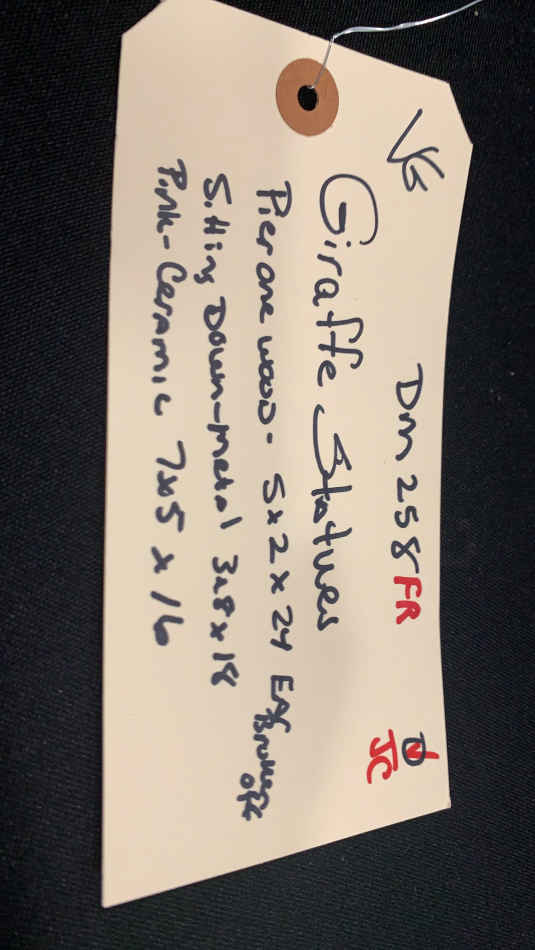 VG DM 258 FR
JC
Giraffe Statues
Pier one wood - 5 x 2 x 24 Ear Broken off
Sitting Down - metal 3x8 x 18
Pink - Ceramic 7x5 x 16